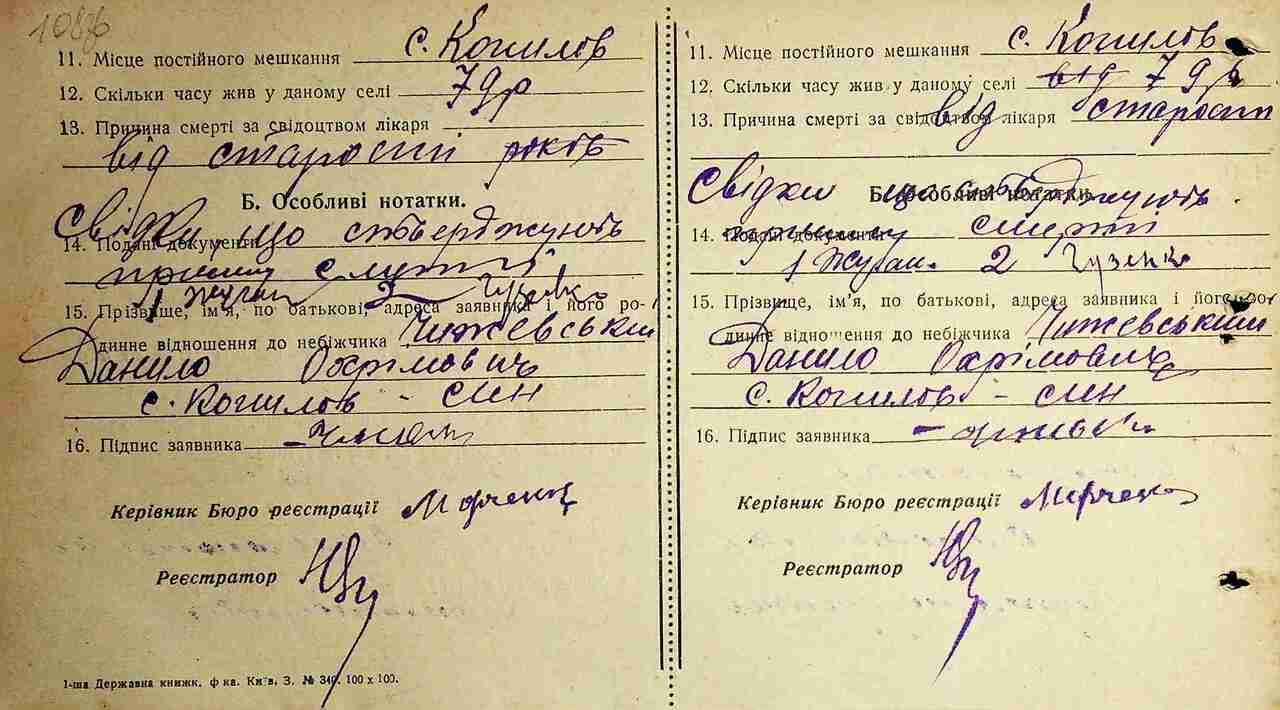 108
11. Місце постійного мешкання с. Копилов
12. Скільки часу жив у даному селі 79р
13. Причина смерті за свідоцтвом лікаря
від старости років
Б. Особливі нотатки.
Свідки що стверджують
14. Подані документи
причину смерті
1 Жуган 2 Гузенко
15. Прізвище, ім'я, по батькові, адреса заявника і його ро-
динне відношення до небіжчика Чижевський
Данило Охрімович
с. Копилов - син
16. Підпис заявника
Керівник Бюро реєстрації Марченко
Реєстратор
1-ша Державна книжк. ф-ка. Київ, З. № 340. 100 х 100.
11. Місце постійного мешкання с. Копилов
12. Скільки часу жив у даному селі від 79р
13. Причина смерті за свідоцтвом лікаря від старости
Б. Особливі нотатки.
Свідки що стверджують
14. Подані документи причину смерті
1 Жуган. 2 Гузенко
15. Прізвище, ім'я, по батькові, адреса заявника і його ро-
динне відношення до небіжчика Чижевський
Данило Охрімович
с. Копилов - син
16. Підпис заявника
Керівник Бюро реєстрації Марченко
Реєстратор